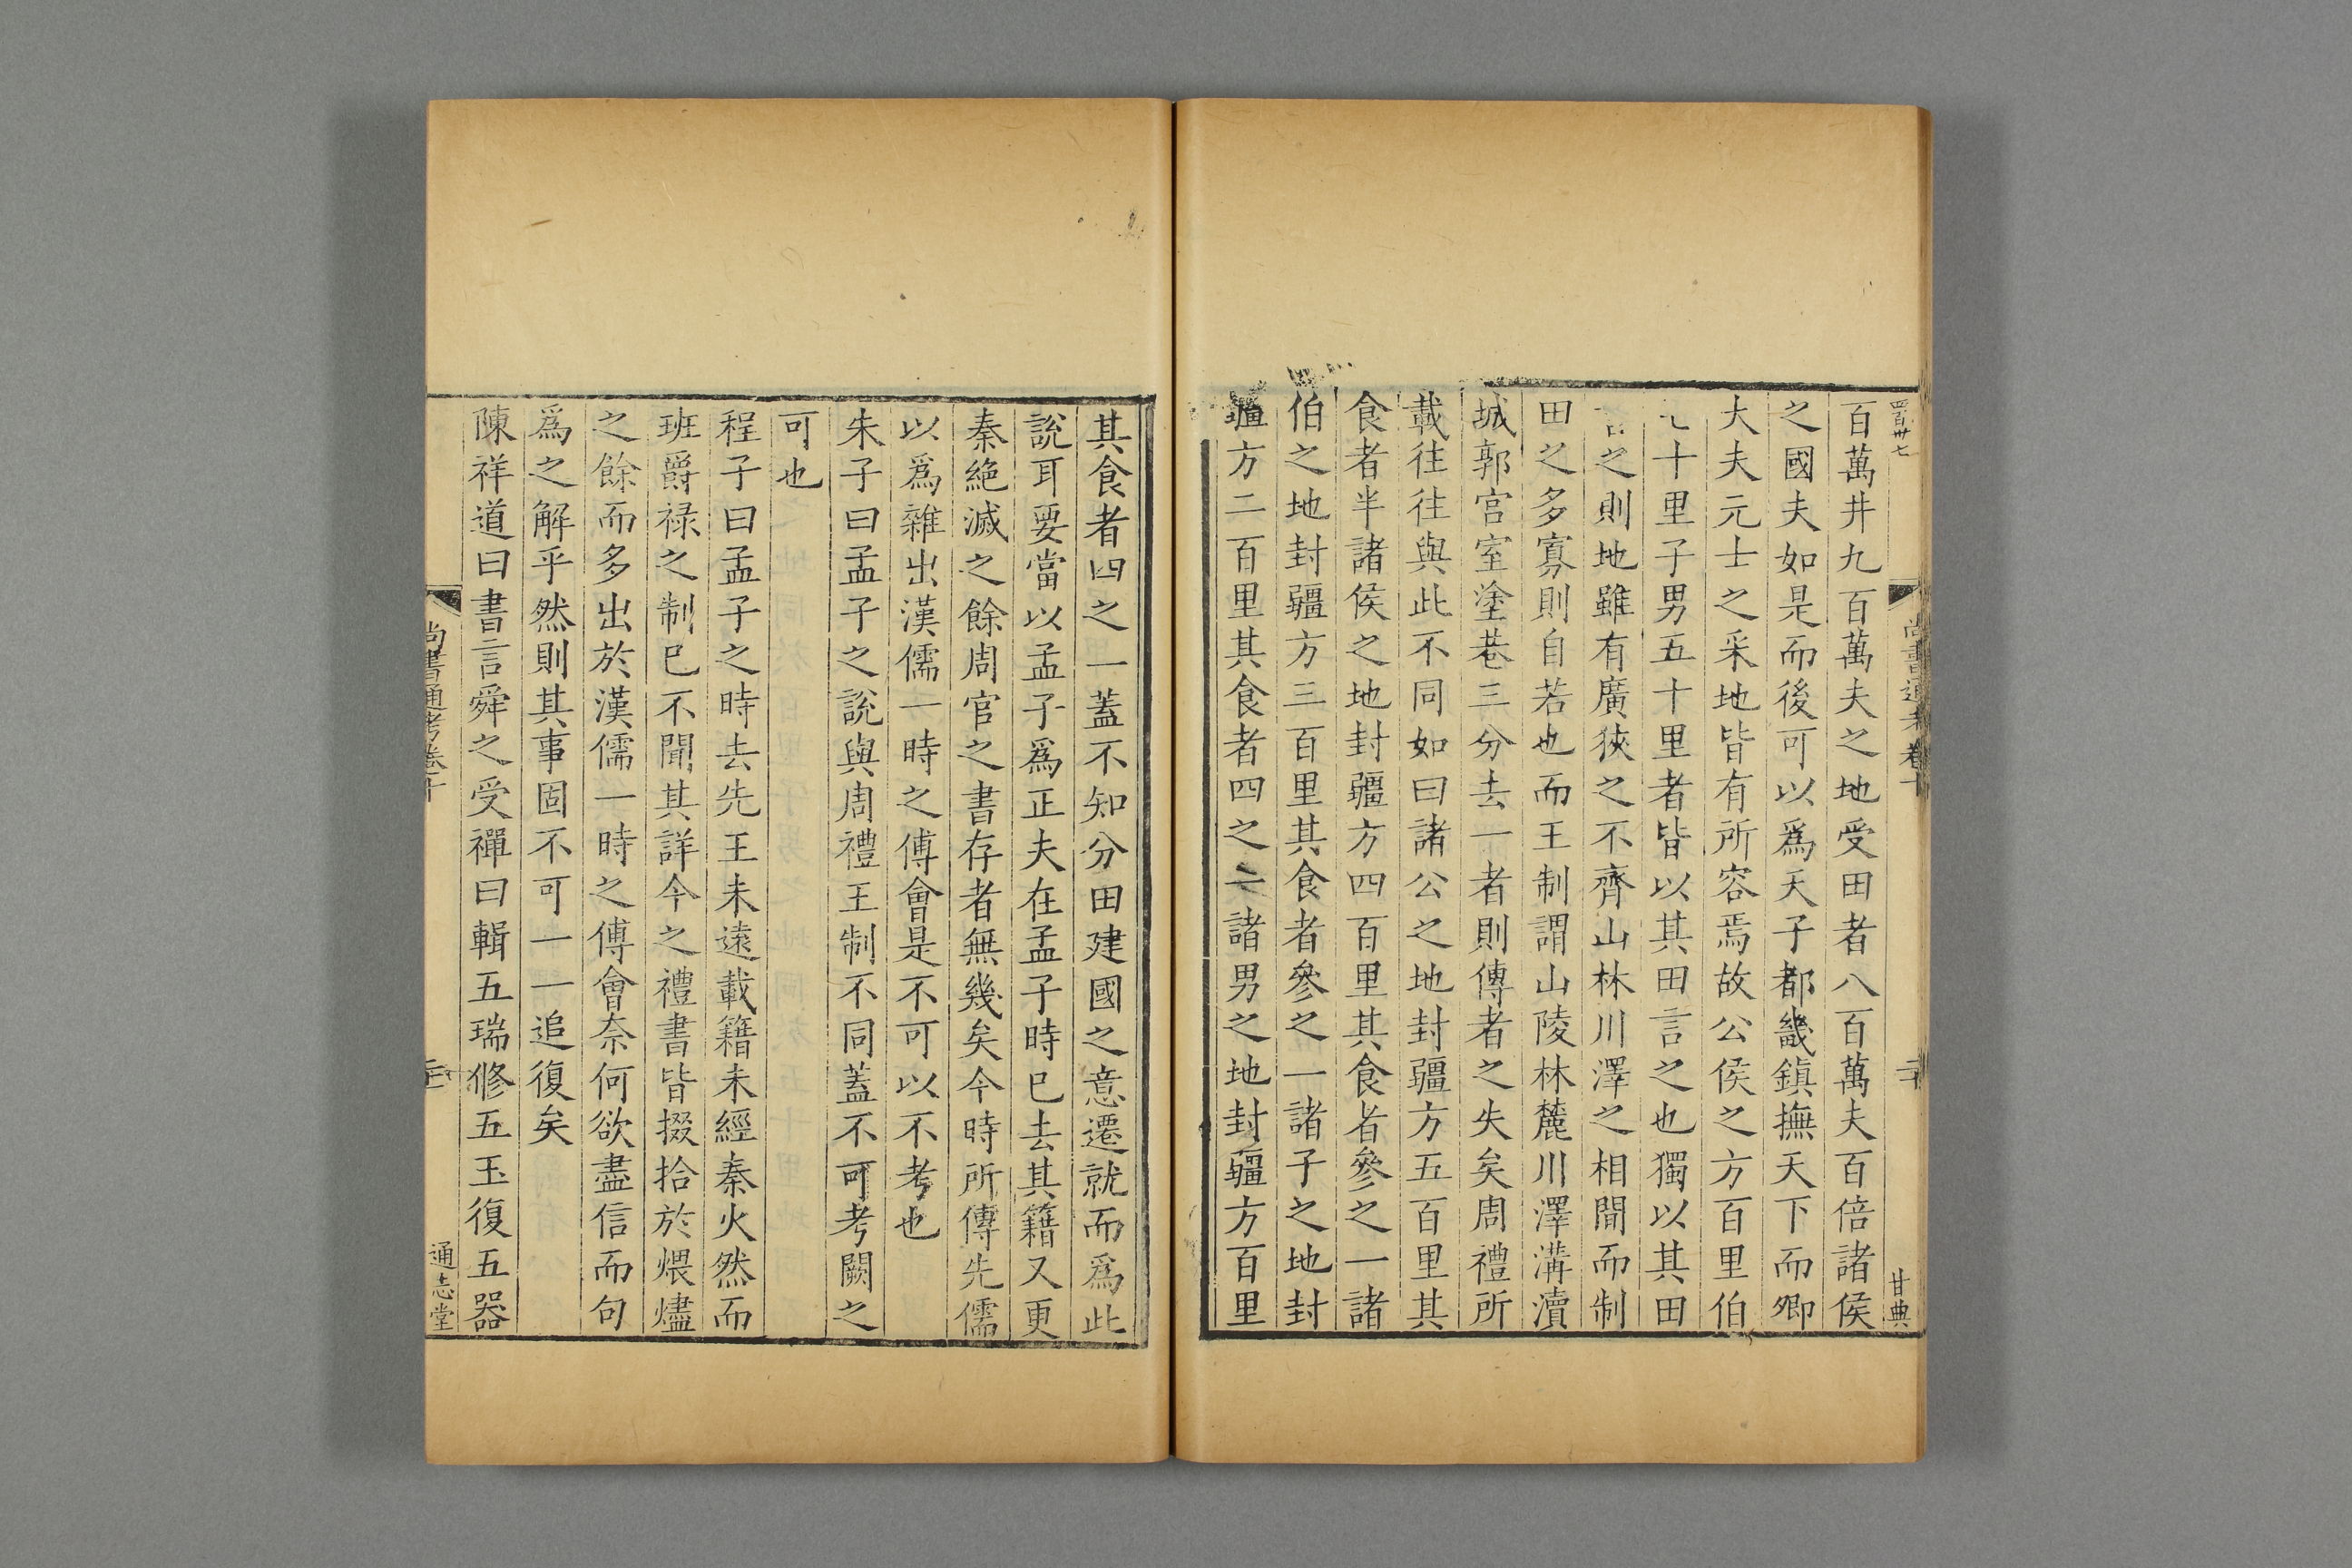 百萬井九百萬夫之地受田者八百萬夫百倍諸侯
之國夫如是而後可以爲天子都畿鎮撫天下而卿
大夫元士之采地皆有所容焉故公侯之方百里伯
七十里子男五十里者皆以其田言之也獨以其田
之則地雖有廣狹之不齊山林川澤之相間而制
田之多寡則自若也而王制謂山陵林麓川澤溝瀆
城郭宮室塗巷三分去一者則傳者之失矣周禮所
載往往與此不同如曰諸公之地封疆方五百里其
食者半諸侯之地封疆方四百里其食者參之一諸
伯之地封疆方三百里其食者參之一諸子之地封
疆方二百里其食者四之一諸男之地封疆方百里
尚書通考卷十
二十
甘典
其食者四之一蓋不知分田建國之意遷就而爲此
說耳要當以孟子爲正夫在孟子時已去其籍又更
秦絕滅之餘周官之書存者無幾矣今時所傳先儒
以爲雜出漢儒一時之傅會是不可以不考也
朱子曰孟子之說與周禮王制不同蓋不可考闕之
可也
程子曰孟子之時去先王未遠載籍未經秦火然而
班爵祿之制已不聞其詳今之禮書皆掇拾於煨燼
之餘而多出於漢儒一時之傅會奈何欲盡信而句
爲之解乎然則其事固不可一一追復矣
陳祥道曰書言舜之受禪曰輯五瑞修五玉復五器
尚書通考卷十
通志堂